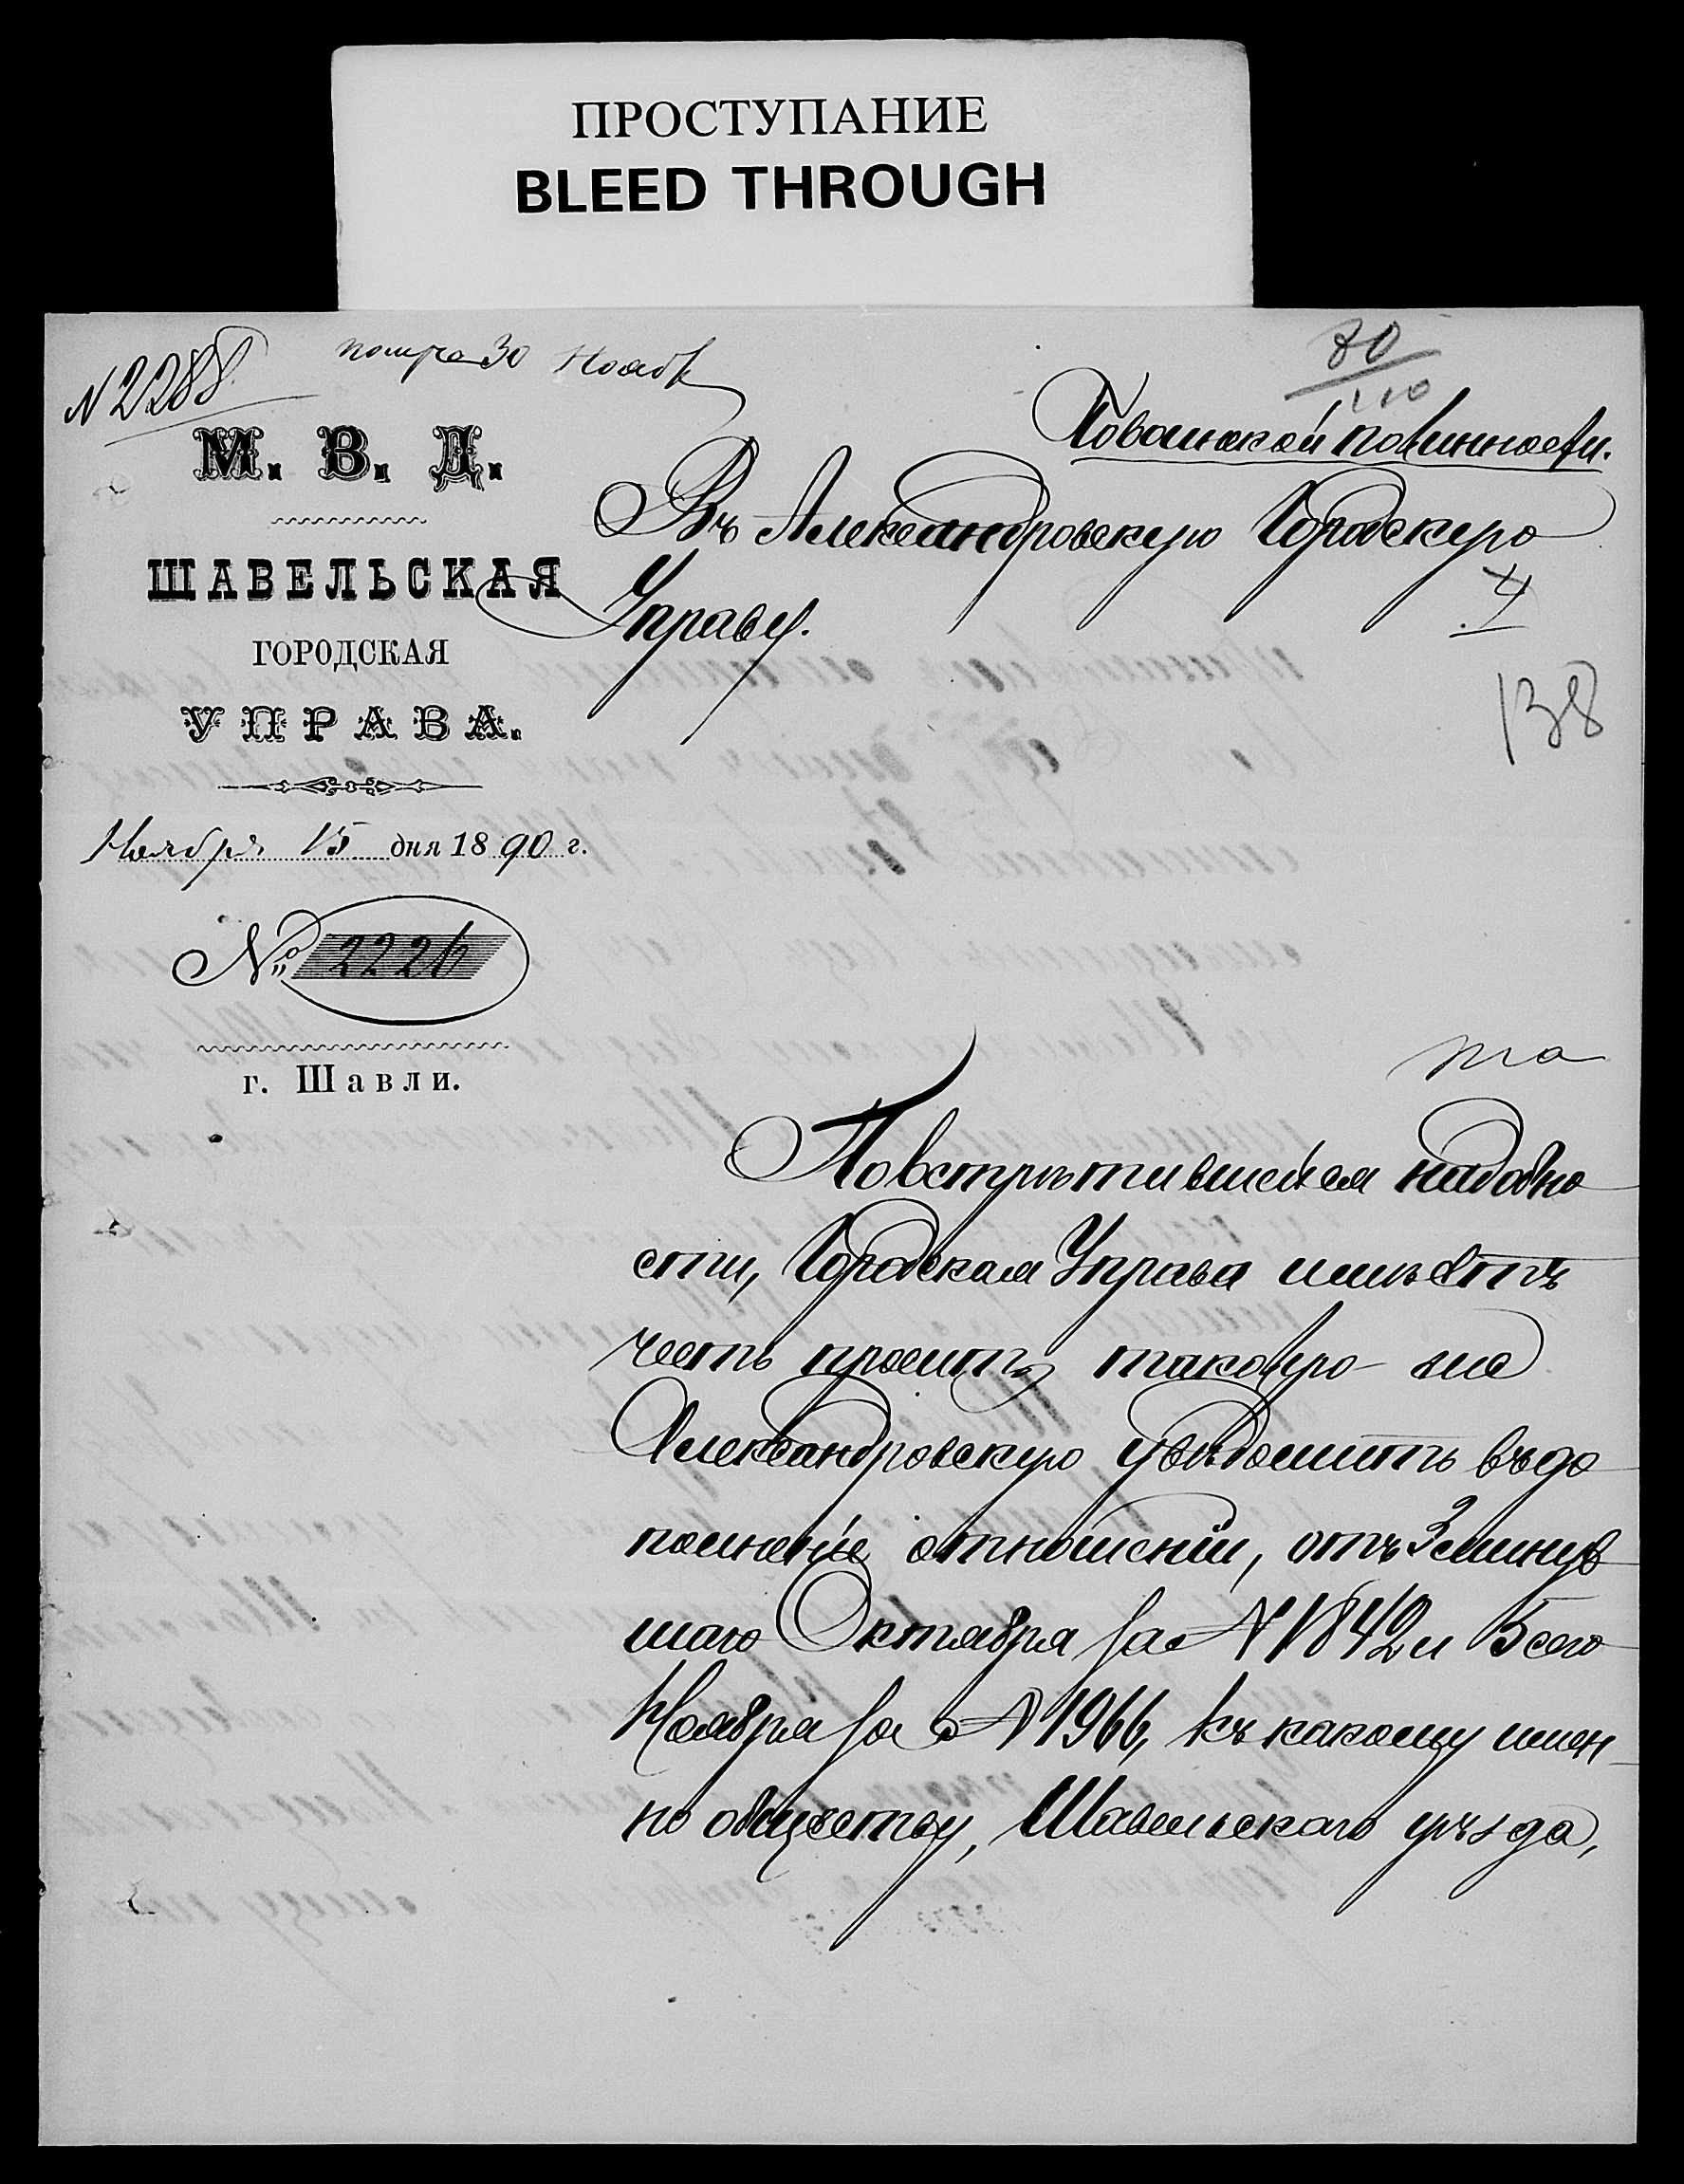 ПРОСТУПАНИЕ
BLEED THROUGH
N 2288
30 Нояб
80
110
По воинской повинности.
М. В. Д.
ШАВЕЛЬСКАЯ
ГОРОДСКАЯ
УПРАВА.
Ноября 15 дня 1890 г.
№ 2226
г. Шавли.
Въ Александровскую Городскую
Управу.
4
138
По встрѣтившейся надобно
сти, Городская Управа имѣетъ
честь просить таковую же
Александровскую увѣдомить въ до
полненіе отношеній, отъ 3 минув
шаго Октября за N 1842 и 5 сего
Ноября за N 1966, къ какому имен
но обществу, Шавельскаго уѣзда,